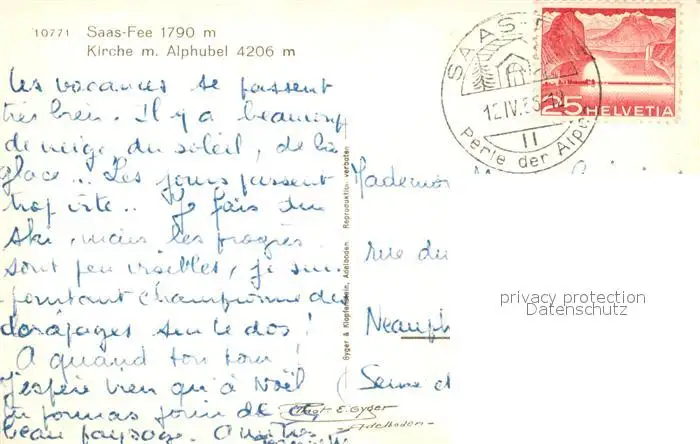 10771 Saas-Fee 1790 m
Kirche m. Alphubel 4206 m
Les vacances se passent
très bien. Il y a beaucoup
de neige, du soleil, de la
glace... Les jours passent
trop vite.. Je fais du
ski, mais les progrès
sont peu visibles, je suis
pourtant championne de
dérapages sur le dos!
A quand ton tour!
J'espère bien qu'à Noël
tu pourras jouir de ce
beau paysage.
Gyger & Klopfenstein, Adelboden Reproduktion verboten
Phot. E. Gyger
Adelboden
SAAS-
12.IV.55-
II
Perle der Alpe
25 HELVETIA
Mademoi
rue du
Neauph
Seine et
privacy protection
Datenschutz